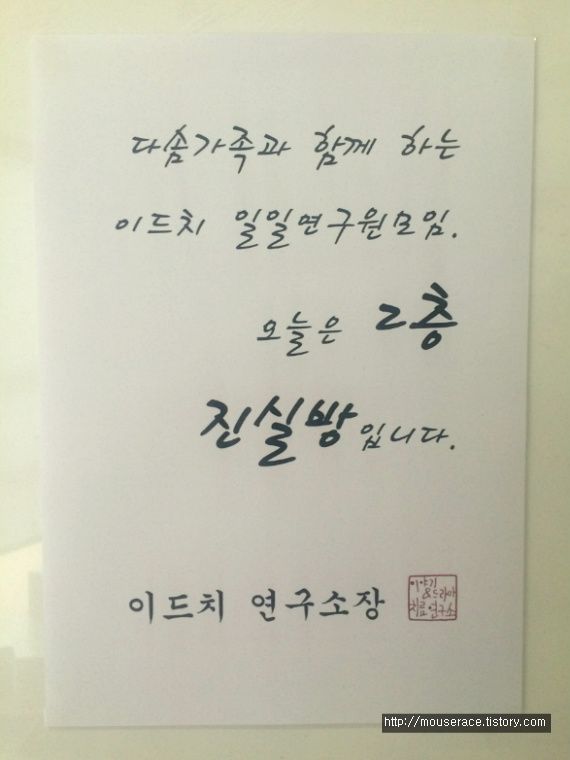 다솜가족과 함께 하는
이드치 일일연구원모임.
오늘은 2층
진실방입니다.
이드치 연구소장
이야기
&드라마
치료연구소
http://mouserace.tistory.com